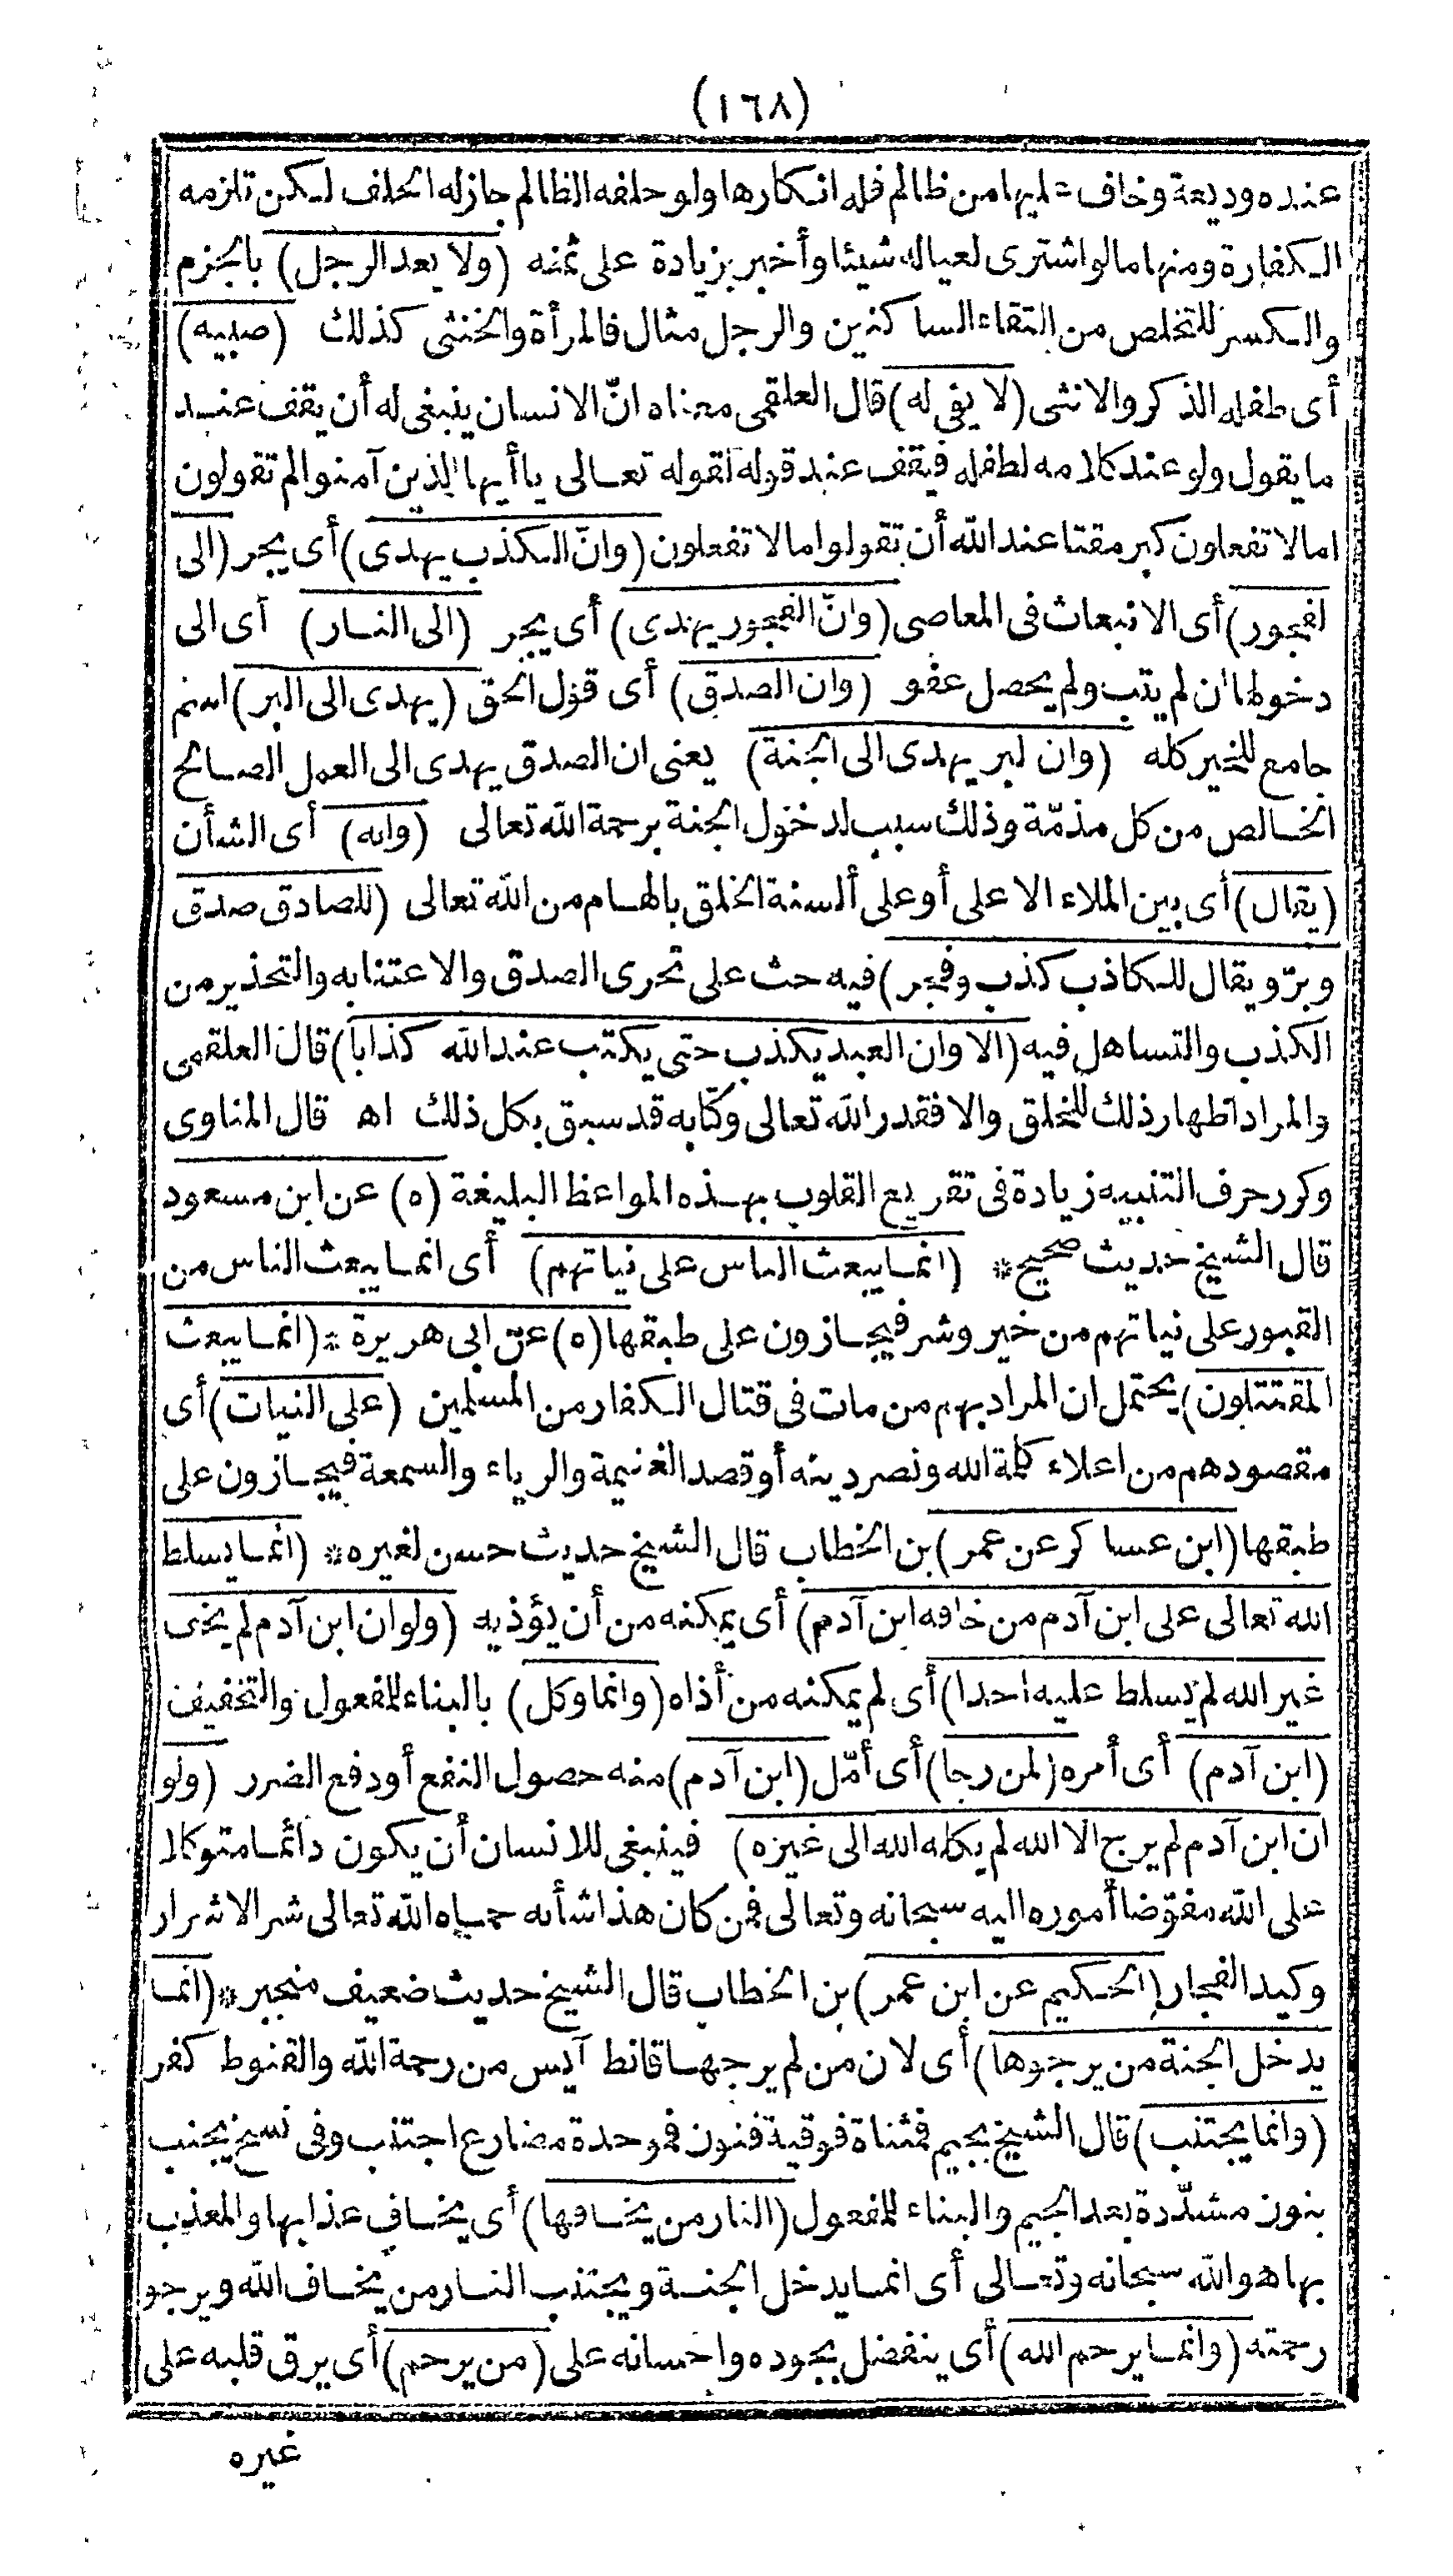 (١٦٨)
عنده وديعة وخاف عليها من ظالم فله انكارها ولو حلفه الظالم جاز له الحلف لكن تلزمه
الكفارة ومنها ما لو اشترى لعياله شيئا وأخبر بزيادة على ثمنه (ولا يعد الرجل) بالجزم
والكسر للتخلص من التقاء الساكنين والرجل مثال فالمرأة والخنثى كذلك (صبيه)
أى طفله الذكر والانثى (لا يفى له) قال العلقمى معناه انّ الانسان ينبغى له أن يقف عند
ما يقول ولو عند كلامه لطفله فيقف عند قوله لقوله تعالى يا أيها الذين آمنوا لم تقولون
امالا تفعلون كبر مقتا عند الله أن تقولوا مالا تفعلون (وانّ الكذب يهدى) أى يجر (الى
لفجور) أى الانبعاث فى المعاصى (وانّ الفجور يهدى) أى يجر (الى النار) أى الى
دخولها ان لم يتب ولم يحصل عفو (وان الصدق) أى قول الحق (يهدى الى البر) اسم
جامع للخير كله (وان لبر يهدى الى الجنة) يعنى ان الصدق يهدى الى العمل الصالح
الخالص من كل مذمّة وذلك سبب لدخول الجنة برحمة الله تعالى (وانه) أى الشأن
(يقال) أى بين الملاء الاعلى أو على ألسنة الخلق بالهام من الله تعالى (للصادق صدق
وبرّ ويقال للكاذب كذب وفجر) فيه حث على تحرى الصدق والاعتنابه والتحذير من
الكذب والتساهل فيه (الا وان العبد يكذب حتى يكتب عند الله كذابا) قال العلقمى
والمراد اظهار ذلك للخلق والا فقدر الله تعالى وكتابه قد سبق بكل ذلك اه قال المناوى
وكرر حرف التنبيه زيادة فى تقريع القلوب بهذه المواعظ البليغة (ه) عن ابن مسعود
قال الشيخ حديث صحيح * (انما يبعث الناس على نياتهم) أى انما يبعث الناس من
القبور على نياتهم من خير وشر فيجازون على طبقها (ه) عن ابى هريرة * (انما يبعث
المقتتلون) يحتمل ان المراد بهم من مات فى قتال الكفار من المسلمين (على النيات) أى
مقصودهم من اعلاء كلمة الله ونصر دينه أو قصد الغنيمة والرياء والسمعة فيجازون على
طبقها (ابن عساكر عن عمر) بن الخطاب قال الشيخ حديث حسن لغيره * (انما يسلط
الله تعالى على ابن آدم من خافه ابن آدم) أى يمكنه من أن يؤذيه (ولو ان ابن آدم لم يخف
غير الله لم يسلط عليه احدا) أى لم يمكنه من أذاه (وانما وكل) بالبناء للمفعول والتخفيف
(ابن آدم) أى أمره (لمن رجا) أى أمّل (ابن آدم) منه حصول النفع أو دفع الضرر (ولو
ان ابن آدم لم يرج الا الله لم يكله الله الى غيره) فينبغى للانسان أن يكون دائما متوكلا
على الله مفوّضا أموره اليه سبحانه وتعالى فمن كان هذا شأنه حماه الله تعالى شر الاشرار
وكيد الفجار (الحكيم عن ابن عمر) بن الخطاب قال الشيخ حديث ضعيف منجبر * (انما
يدخل الجنة من يرجوها) أى لان من لم يرجها قانط آيس من رحمة الله والقنوط كفر
(وانما يجتنب) قال الشيخ بجيم فمثناة فوقية فنون فموحدة مضارع اجتنب وفى نسخ يجنب
بنون مشدّدة بعد الجيم والبناء للمفعول (النار من يخافها) أى يخاف عذابها والمعذب
بها هو الله سبحانه وتعالى أى انما يدخل الجنة ويجتنب النار من يخاف الله ويرجو
رحمته (وانما يرحم الله) أى يتفضل بجوده واحسانه على (من يرحم) أى يرق قلبه على
غيره